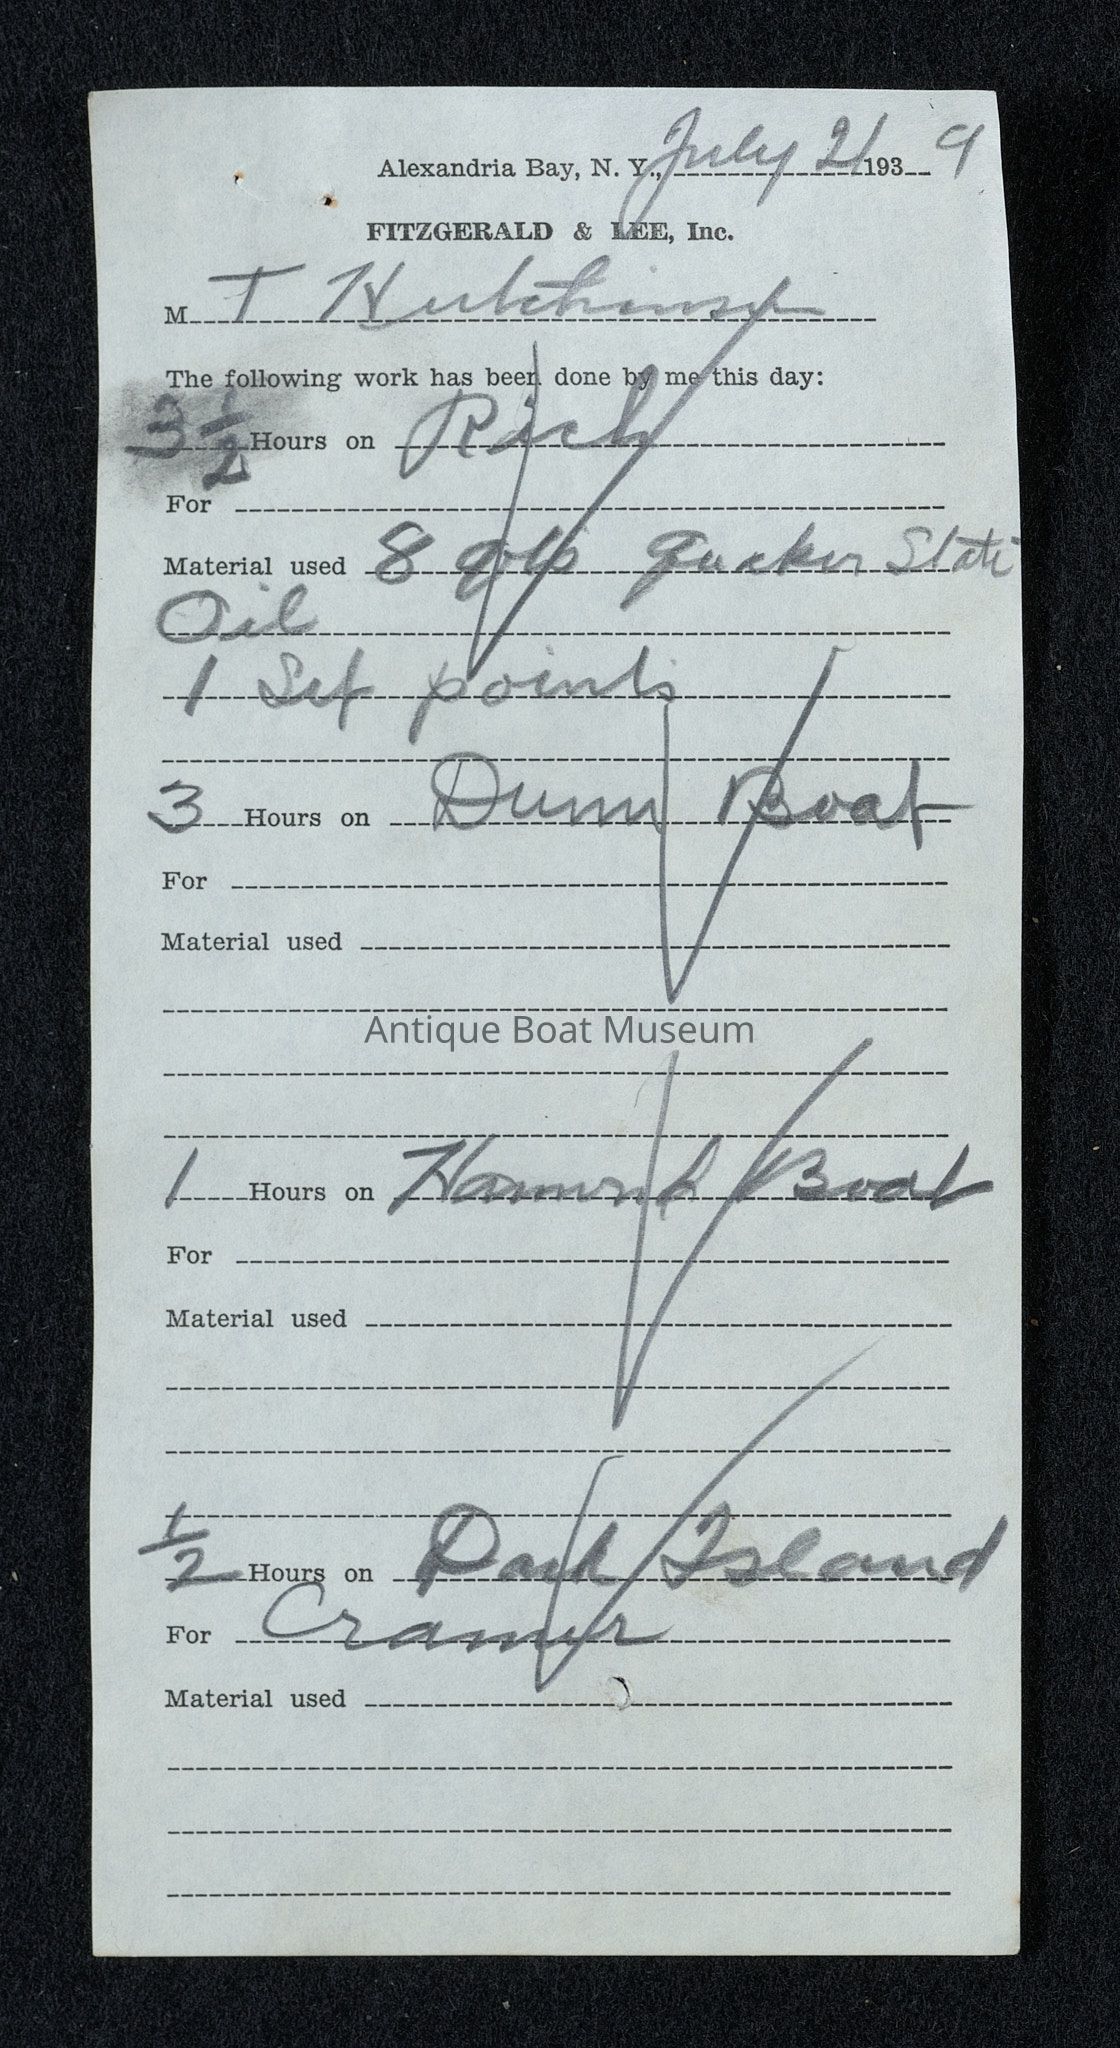 Alexandria Bay, N. Y., July 21 1939
FITZGERALD & LEE, Inc.
M T Hutchinson
The following work has been done by me this day:
3 1/2 Hours on Rich
For
Material used 8 qts Quaker State
Oil
1 Set points
3 Hours on Dunn Boat
For
Material used
Antique Boat Museum
1 Hours on Boat
For
Material used
1/2 Hours on Dark Island
For Cramer
Material used